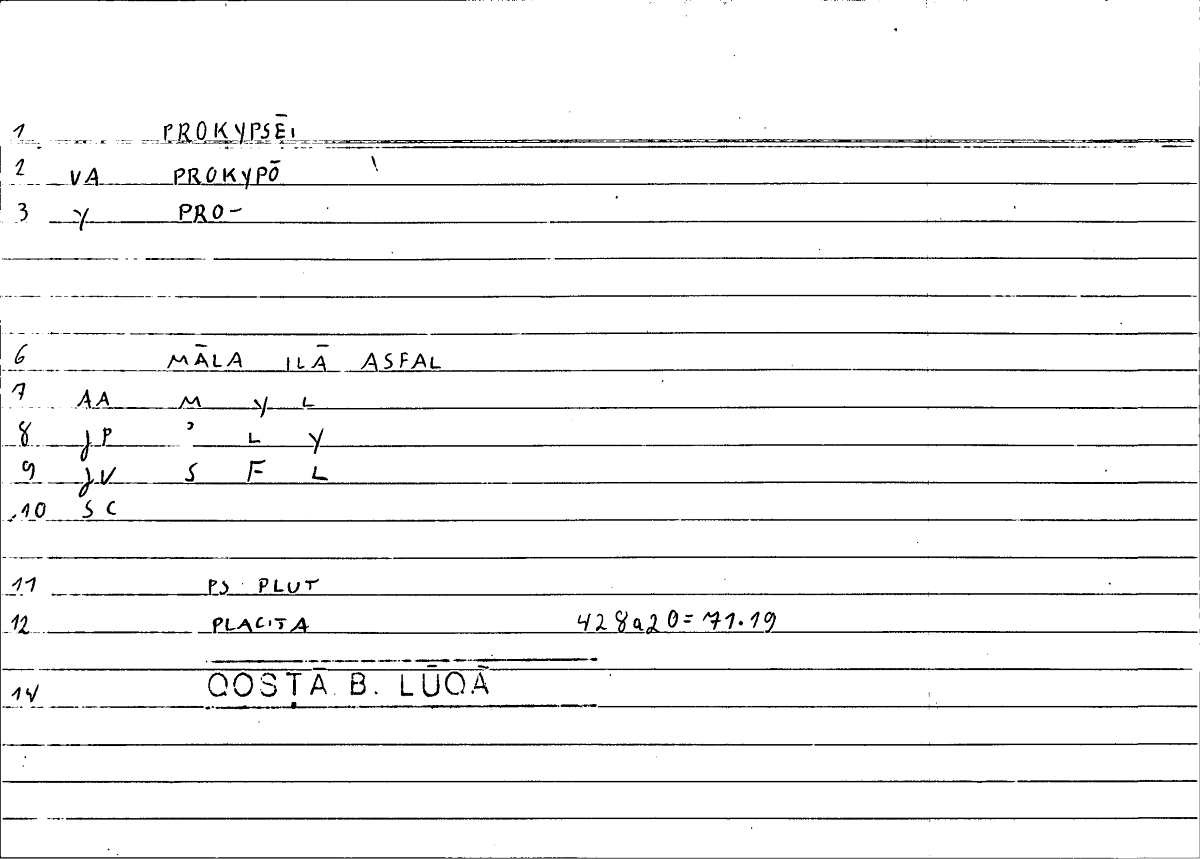 1 PROKYPSĒI
2 VA PROKYPŌ
3 Y PRO-
6 MĀLA ILĀ ASFAL
7 AA M Y L
8 JP ʾ L Y
9 JV S F L
10 SC
11 PS PLUT
12 PLACITA 428a20=71.19
14 QOSṬĀ B. LŪQĀ